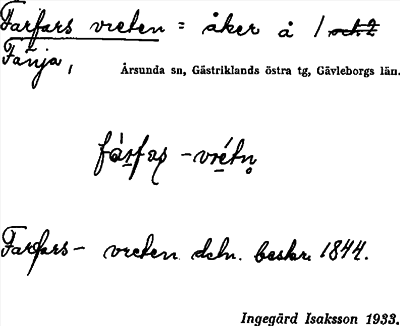 Farfars vreten = åker å 1 och 2
Fänja,
Årsunda sn, Gästriklands östra tg, Gävleborgs län.
fársfas -vrétn̥
Farfars- vreten. deln. beskr. 1844.
Ingegärd Isaksson 1933.